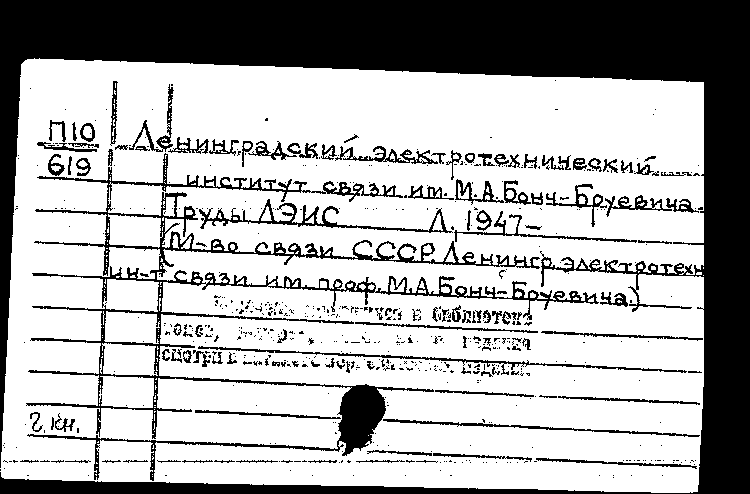 П10
619
Ленинградский электротехнический
институт связи им. М.А.Бонч-Бруевича.
Труды ЛЭИС Л., 1947-
(М-во связи СССР. Ленингр. электротехн
ин-т связи им. проф. М.А.Бонч-Бруевича.)
в библиотеке
томов,
издания
смотри в
2 кн.